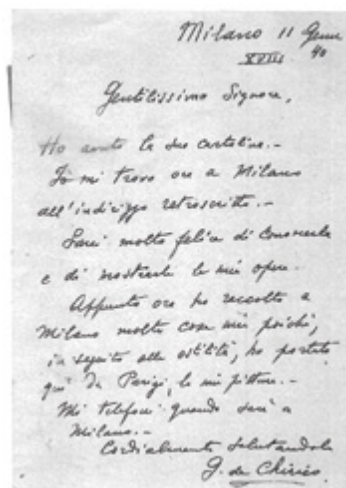 Milano 11 Genn
XVIII 40
Gentilissimo Signore,
Ho avuto la sua cartolina.-
Io mi trovo ora a Milano
all'indirizzo retroscritto.-
Sarei molto felice di conoscerla
e di mostrarle le mie opere.
Appunto ora ho raccolto a
Milano molte cose mie poichè,
in seguito alle ostilità, ho portato
qui da Parigi, le mie pitture.-
Mi telefoni quando sarà a
Milano.-
Cordialmente salutandola
G. de Chirico